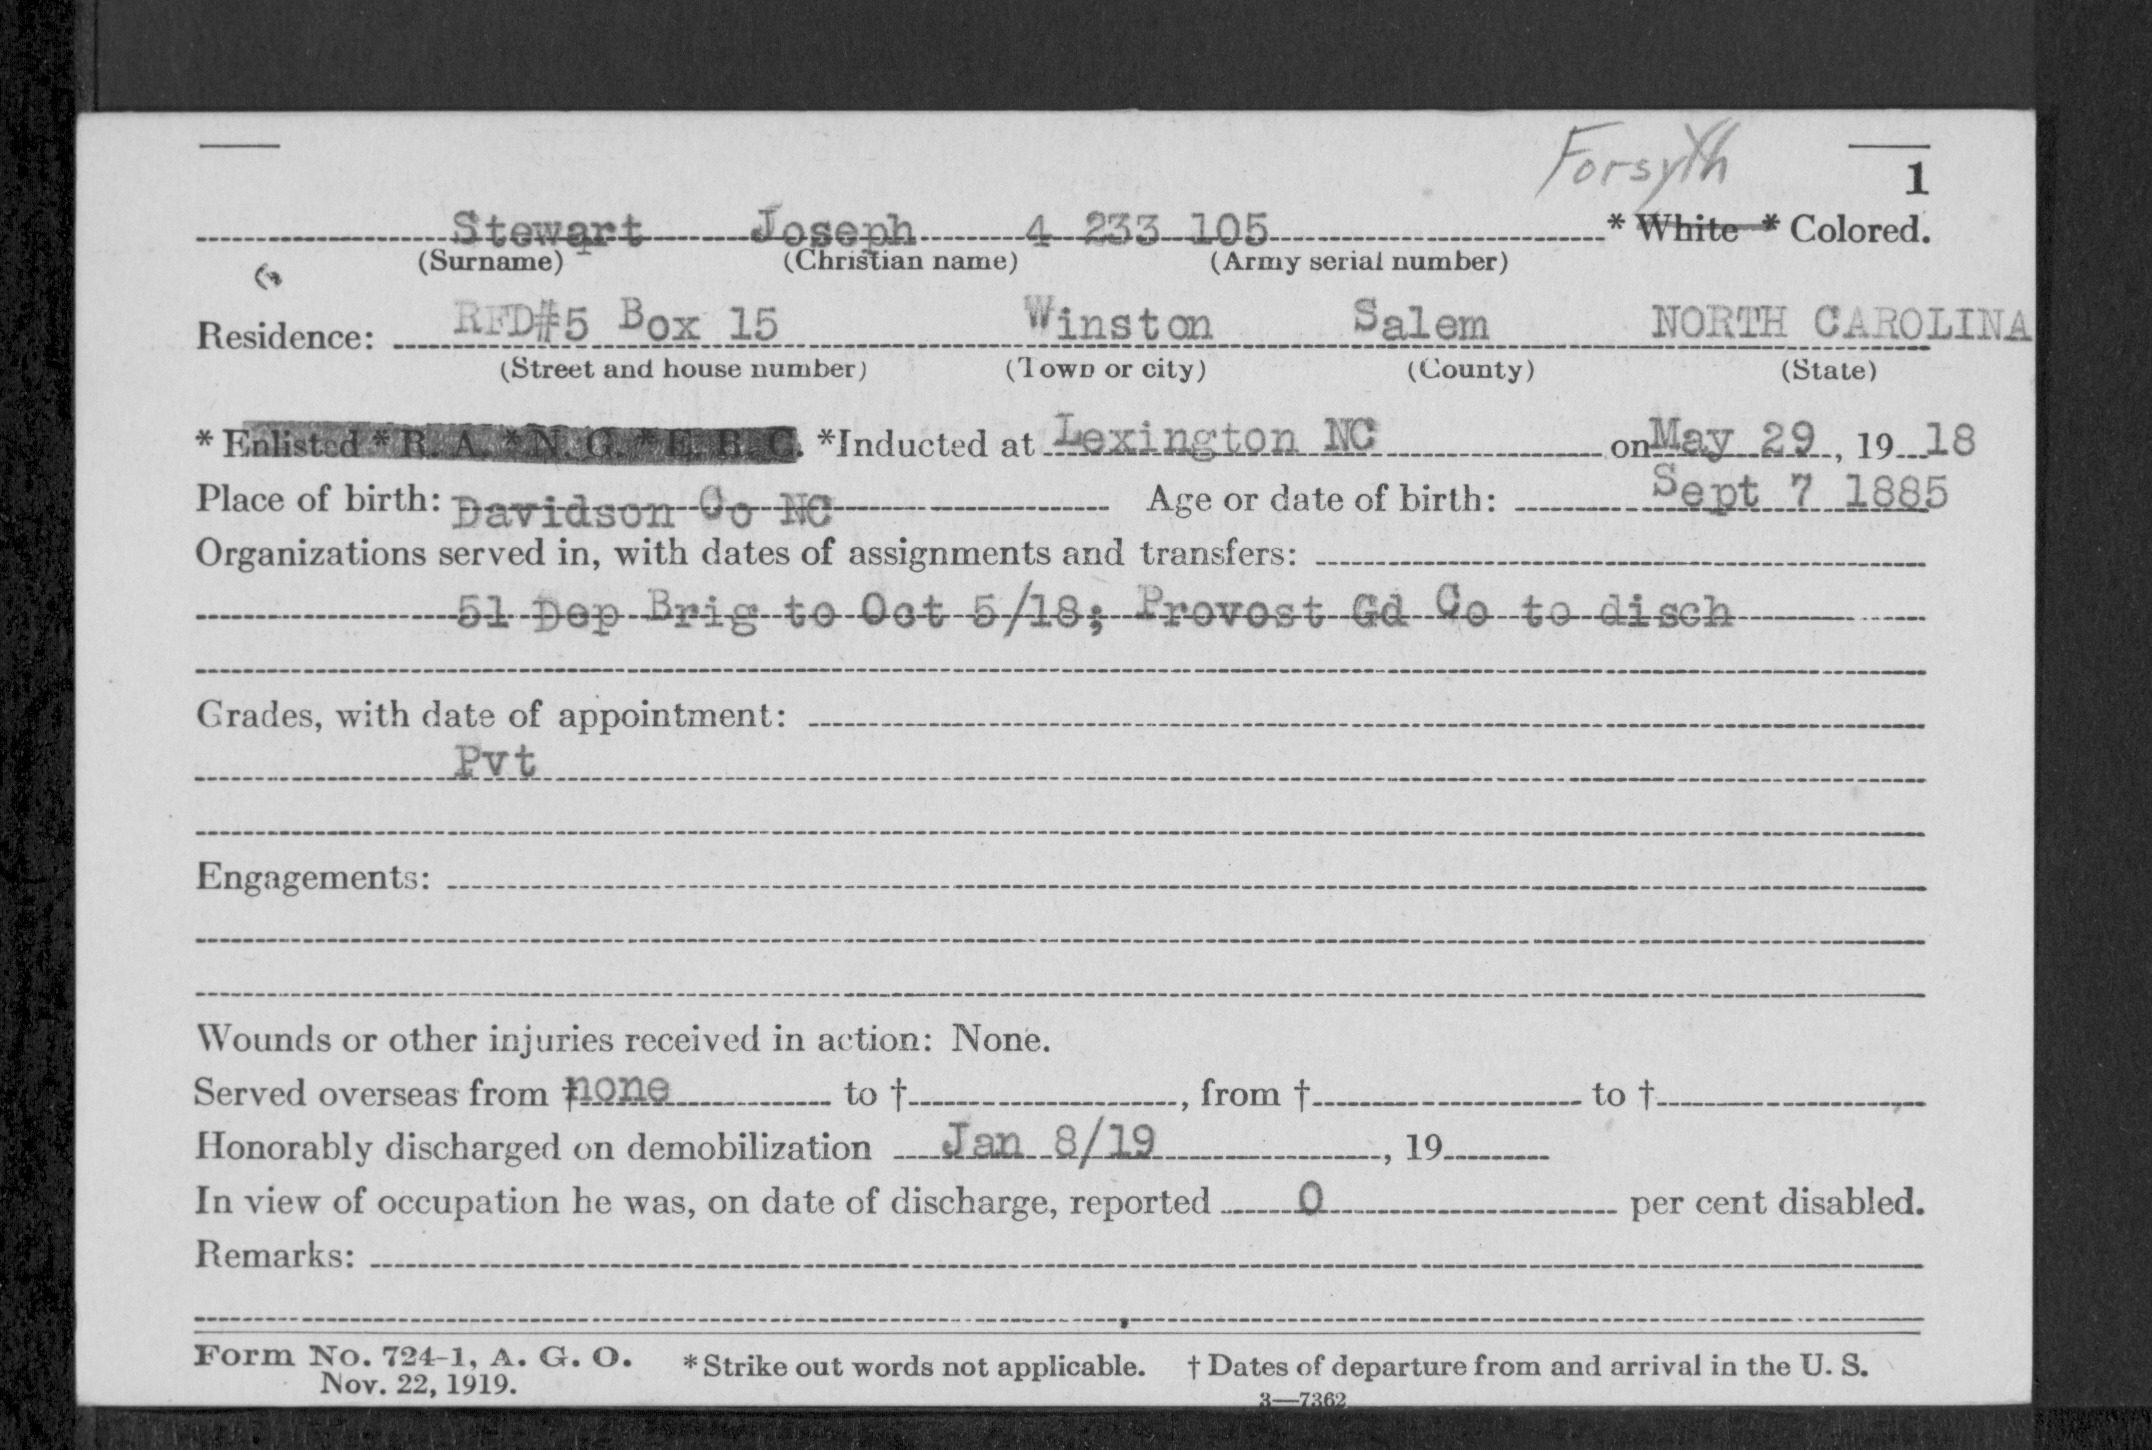 Forsyth
1
Stewart Joseph 4 233 105 * White * Colored.
(Surname) (Christian name) (Army serial number)
Residence: RFD#5 Box 15 Winston Salem NORTH CAROLINA
(Street and house number) (Town or city) (County) (State)
* Enlisted * R. A. * N. G. * E. R. C. *Inducted at Lexington NC on May 29, 19 18
Place of birth: Davidson Co NC Age or date of birth: Sept 7 1885
Organizations served in, with dates of assignments and transfers:
51 Dep Brig to Oct 5/18; Provost Gd Co to disch
Grades, with date of appointment:
Pvt
Engagements:
Wounds or other injuries received in action: None.
Served overseas from † none to †, from † to †
Honorably discharged on demobilization Jan 8/19, 19
In view of occupation he was, on date of discharge, reported 0 per cent disabled.
Remarks:
Form No. 724-1, A. G. O. * Strike out words not applicable. † Dates of departure from and arrival in the U. S.
Nov. 22, 1919.
3—7362